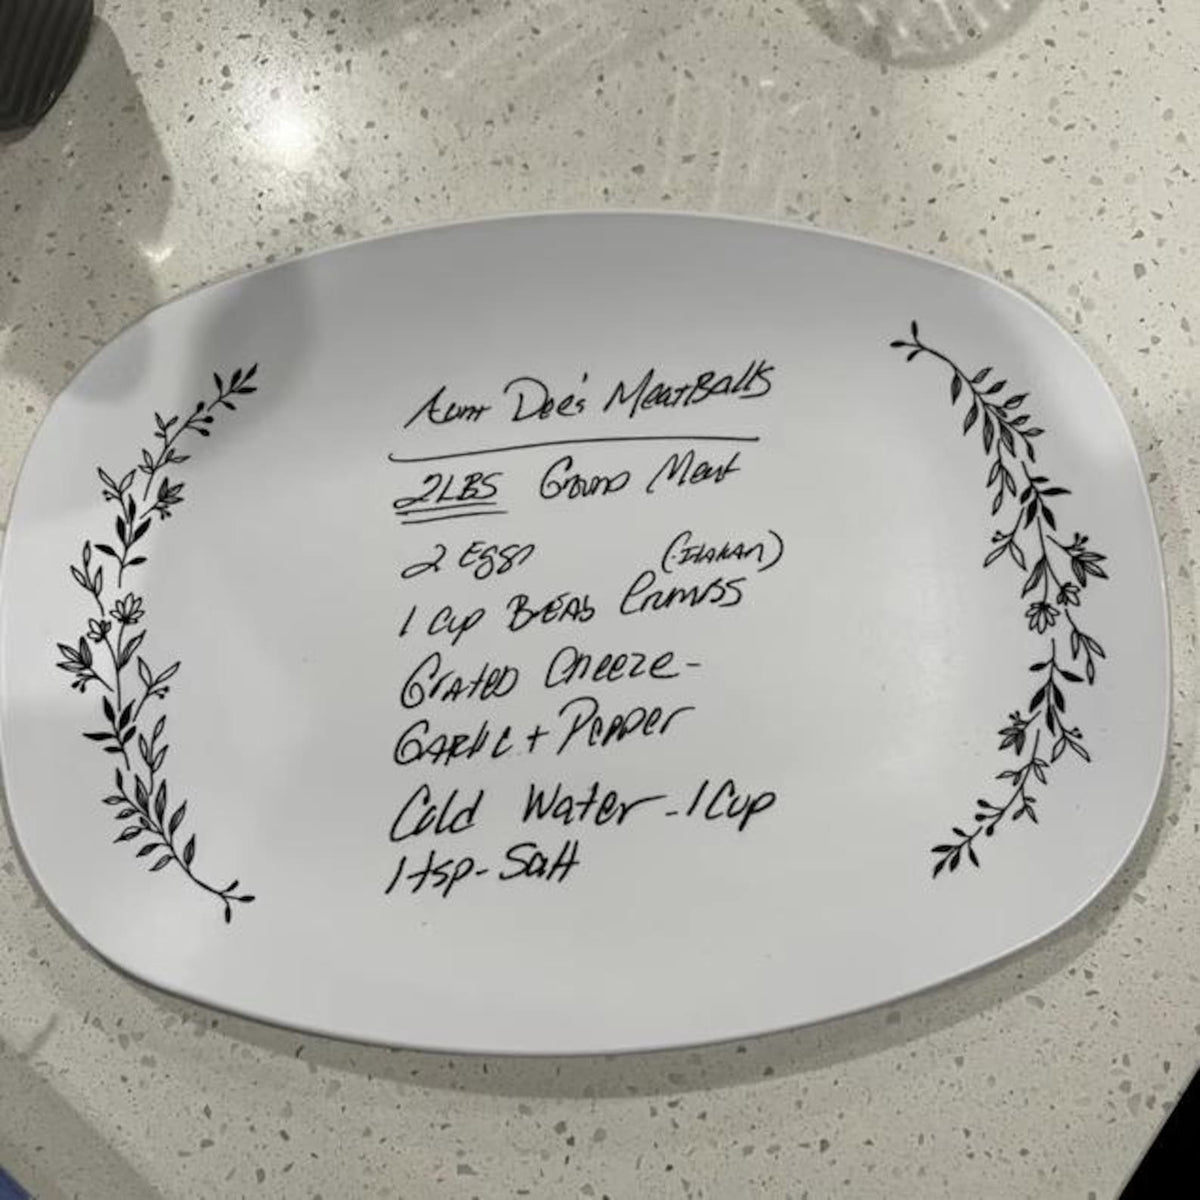 Aunt Dee's MeatBalls
2LBS Ground Meat
2 Eggs
(Italian)
1 Cup Bread Crumbs
Grated Cheeze-
Garlic + Pepper
Cold Water - 1 Cup
1 tsp - Salt